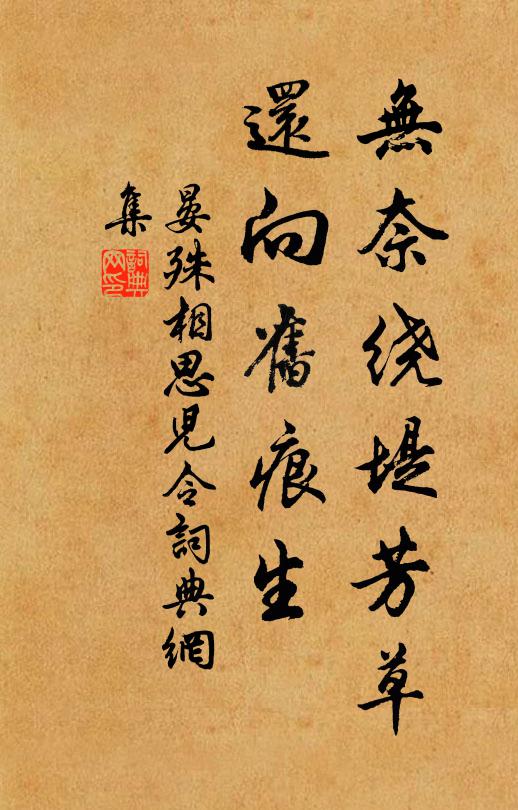 無奈绕堤芳草
還向舊痕生
晏殊相思児令詞典網
集
詞典
网印